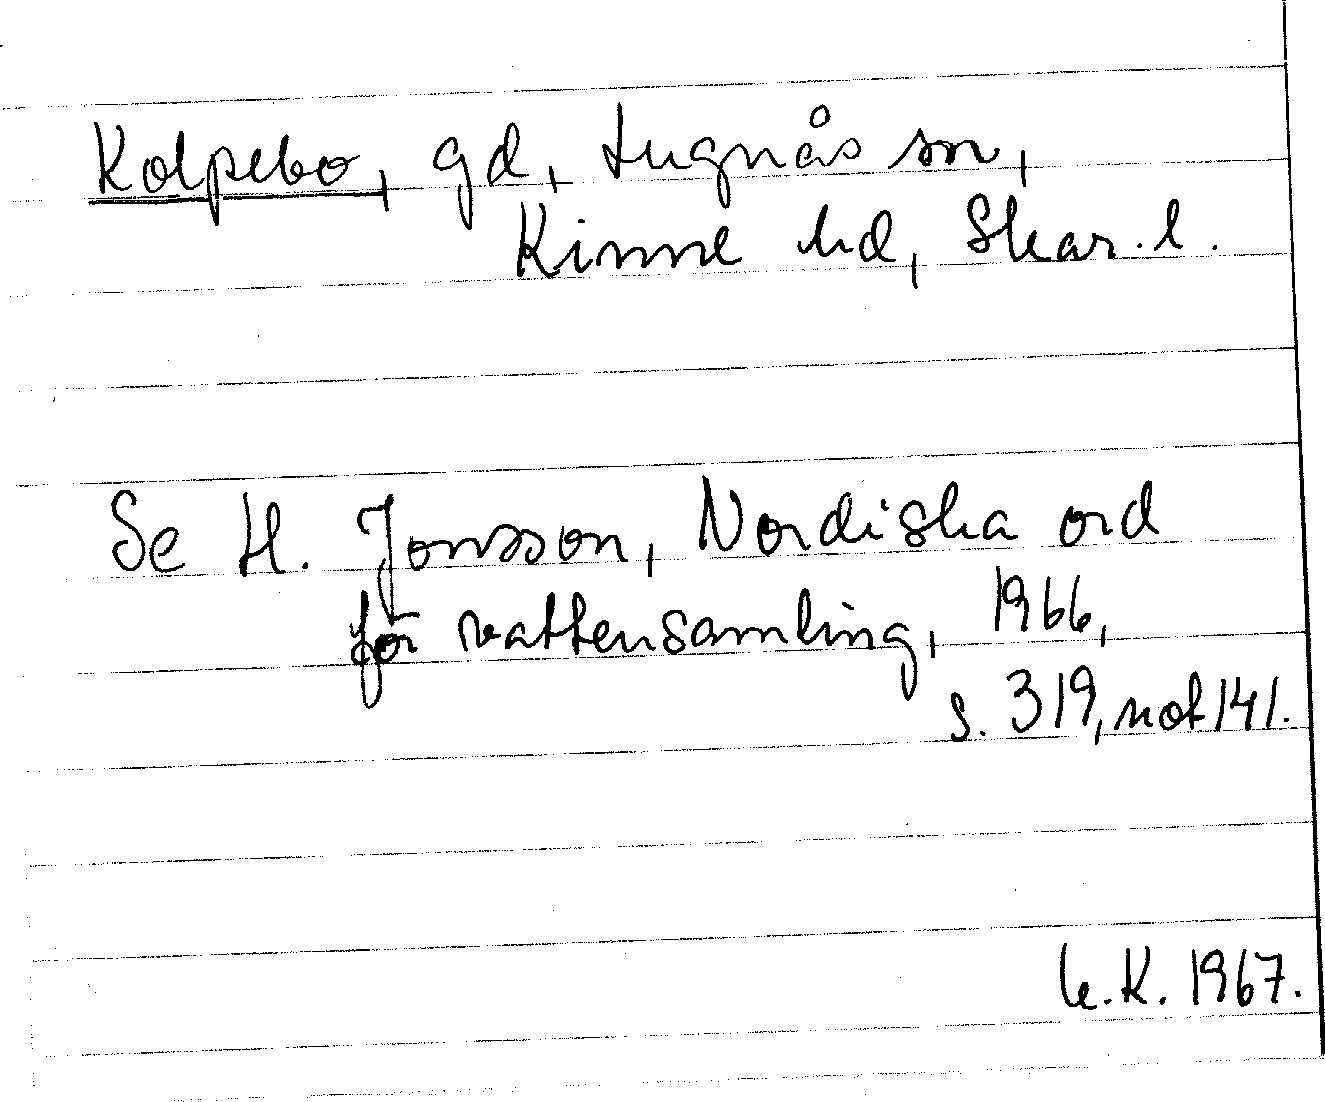 Kolpebo, gd, Lugnås sn,
Kinne hd, Skar. l.
Se H. Jonsson, Nordiska ord
för vattensamling, 1966,
s. 319, not 141.
K. 1967.